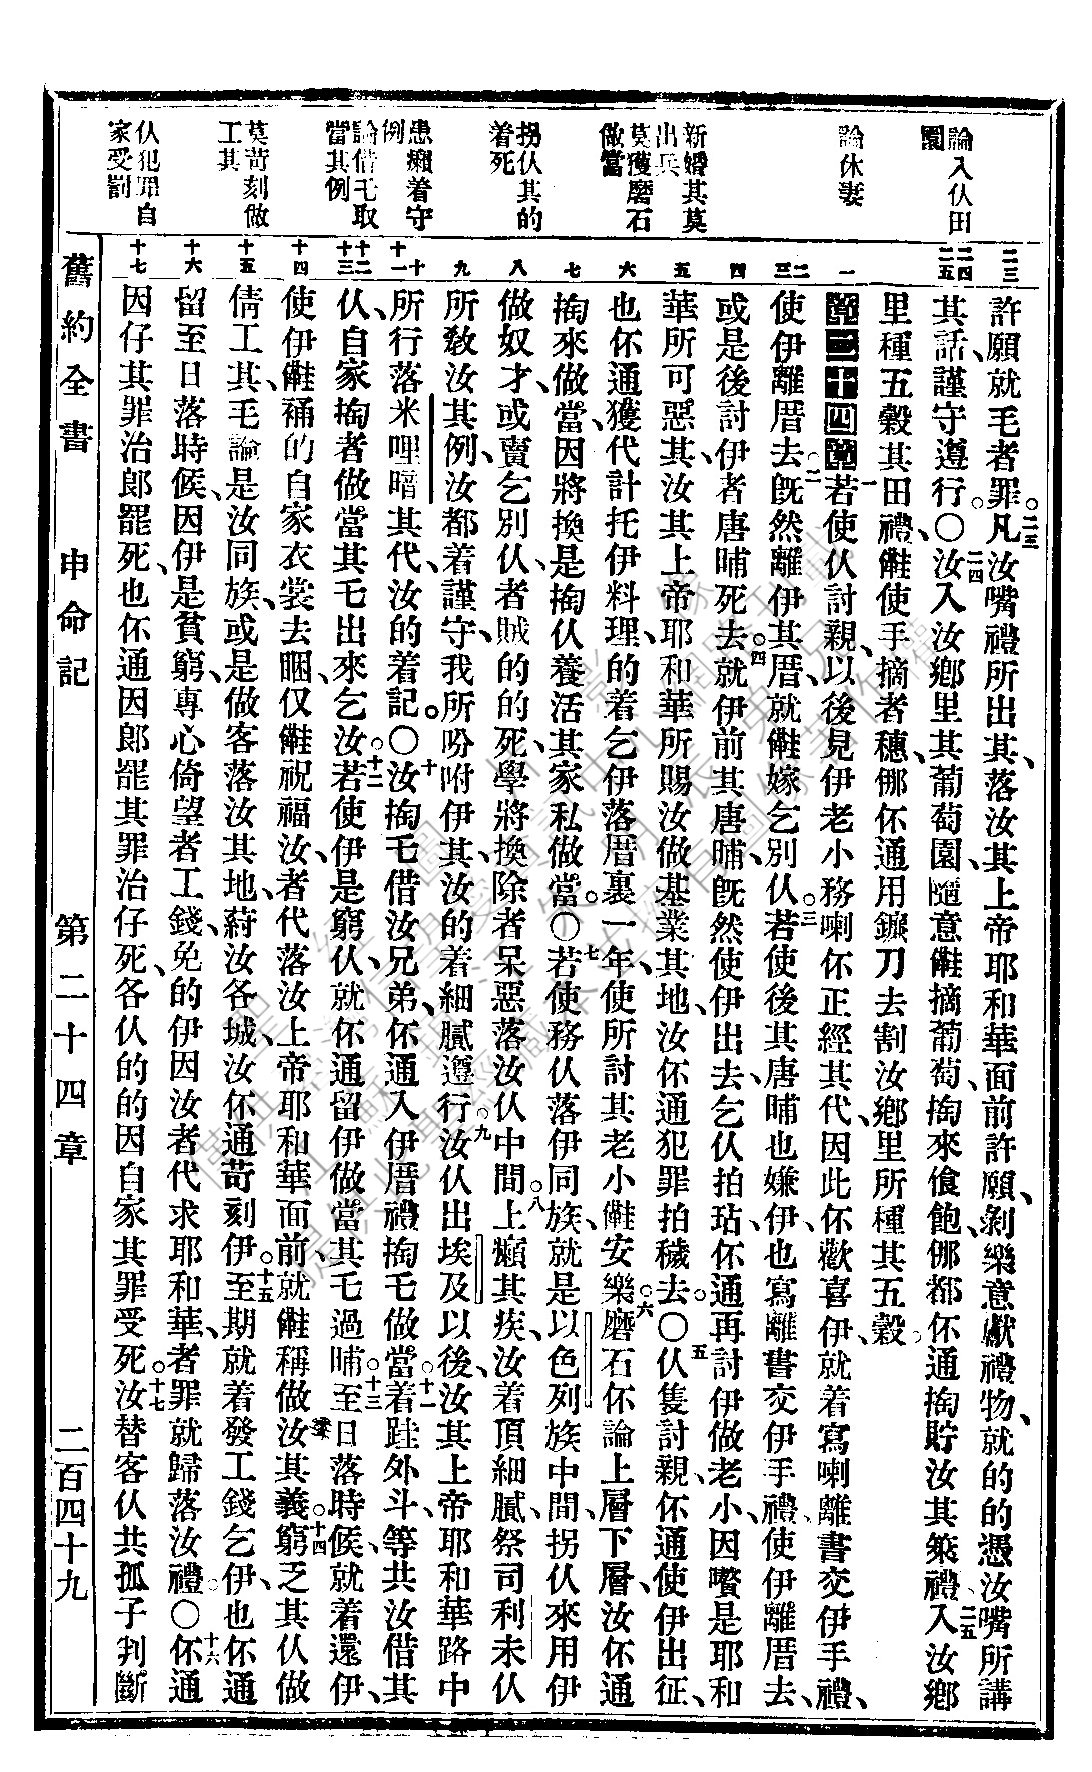 論入仈田
園
論休妻
新婚其莫
出兵
莫獲磨石
做當
拐仈其的
着死
患癩着守
例
論借乇取
當其例
莫苛刻做
工其
仈犯罪自
家受罰
二三 二四 二五 一 二 三 四 五 六 七 八 九 十 十一 十二 十三 十四 十五 十六 十七
許願就毛者罪。二三凡汝嘴禮所出其、落汝其上帝耶和華面前許願、剝樂意獻禮物、就的的憑汝嘴所講
其話、謹守遵行。〇二四汝入汝鄉里其葡萄園、隨意㑚摘葡萄、掏來飧飽、㑚都伓通掏貯汝其䈬禮、二五入汝鄉
里種五穀其田禮、㑚使手摘者穗、㑚伓通用鐮刀去割汝鄉里所種其五穀。
第二十四章 一若使仈討親、以後見伊老小務喇伓正經其代、因此伓歡喜伊、就着寫喇離書交伊手禮、
使伊離厝去。二旣然離伊其厝、就㑚嫁乞別仈。三若使後其唐晡也嫌伊、也寫離書交伊手禮、使伊離厝去、
或是後討伊者唐晡死去。四就伊前其唐晡、旣然使伊出去、乞仈拍玷、伓通再討伊做老小、因嚽是耶和
華所可惡其、汝其上帝耶和華所賜汝做基業其地、汝伓通犯罪拍穢去。〇五仈隻討親、伓通使伊出征、
也伓通獲代計托伊料理、的着乞伊落厝裏一年、使所討其老小㑚安樂。六磨石伓論上層下層、汝伓通
掏來做當、因將換是掏仈養活其家私做當。〇七若使務仈落伊同族、就是以色列族中間、拐仈來用伊
做奴才、或賣乞別仈、者賊的的死、學將換除者呆惡落汝仈中間。八上癩其疾、汝着頂細膩、祭司利未仈
所敎汝其例、汝都着謹守、我所吩咐伊其、汝的着細膩遵行。九汝仈出埃及以後、汝其上帝耶和華路中
所行落米哩暗其代、汝的着記。〇十汝掏乇借汝兄弟、伓通入伊厝禮掏乇做當。十一着跬外斗、等共汝借其
仈、自家掏者做當其乇出來乞汝。十二若使伊是窮仈、就伓通留伊做當其乇過晡。十三至日落時候、就着還伊、
使伊㑚補的自家衣裳去睏、仅㑚祝福汝、者代落汝上帝耶和華面前、就㑚稱做汝其義。十四窮乏其仈做
倩工其、毛論是汝同族、或是做客落汝其地、䔟汝各城、汝伓通苛刻伊。十五至期就着發工錢乞伊、也伓通
留至日落時候、因伊是貧窮、專心倚望者工錢、免的伊因汝者代求耶和華、者罪就歸落汝禮。〇十六伓通
因仔其罪治郎罷死、也伓通因郎罷其罪治仔死、各仈的的因自家其罪受死。十七汝替客仈共孤子判斷
舊約全書 申命記 第二十四章 二百四十九